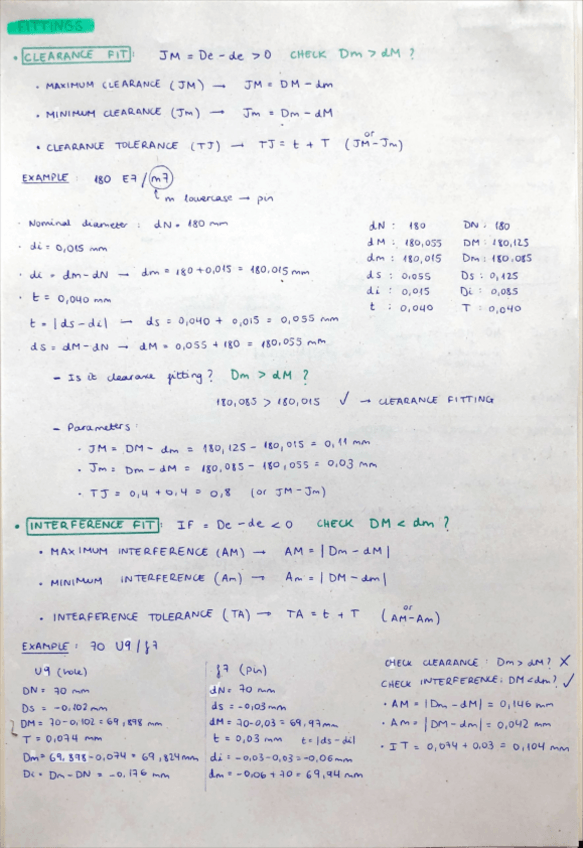 FITTINGS
• CLEARANCE FIT: JM = De - de > 0 CHECK Dm > dM ?
• MAXIMUM CLEARANCE (JM) → JM = DM - dm
• MINIMUM CLEARANCE (Jm) → Jm = Dm - dM
or
• CLEARANCE TOLERANCE (TJ) → TJ = t + T (JM-Jm)
EXAMPLE: 180 E7/m7
m lowercase → pin
· Nominal diameter: dN = 180 mm
· di = 0,015 mm
· di = dm-dN → dm = 180 + 0,015 = 180,015 mm
· t = 0,040 mm
t = |ds-di| → ds = 0,040 + 0,015 = 0,055 mm
ds = dM-dN → dM = 0,055 + 180 = 180,055 mm
dN : 180 DN : 180
dM : 180,055 DM : 180,125
dm : 180,015 Dm : 180,085
ds : 0,055 Ds : 0,125
di : 0,015 Di : 0,085
t : 0,040 T : 0,040
- Is it clearance fitting? Dm > dM ?
180,085 > 180,015 ✓ → CLEARANCE FITTING
- Parameters:
· JM = DM - dm = 180,125 - 180,015 = 0,11 mm
· Jm = Dm - dM = 180,085 - 180,055 = 0,03 mm
· TJ = 0,4 + 0,4 = 0,8 (or JM-Jm)
• INTERFERENCE FIT: IF = De - de < 0 CHECK DM < dm ?
• MAXIMUM INTERFERENCE (AM) → AM = |Dm - dM|
• MINIMUM INTERFERENCE (Am) → Am = |DM - dm|
or
• INTERFERENCE TOLERANCE (TA) → TA = t + T (AM-Am)
EXAMPLE: 70 U9/f7
U9 (hole)
DN = 70 mm
Ds = -0,102 mm
DM = 70-0,102 = 69,898 mm
T = 0,074 mm
Dm = 69,898-0,074 = 69,824 mm
Di = Dm - DN = -0,176 mm
f7 (Pin)
dN = 70 mm
ds = -0,03 mm
dM = 70-0,03 = 69,97 mm
t = 0,03 mm t = |ds-di|
di = -0,03-0,03 = -0,06 mm
dm = -0,06 + 70 = 69,94 mm
CHECK CLEARANCE: Dm > dM? X
CHECK INTERFERENCE: DM < dm? ✓
· AM = |Dm - dM| = 0,146 mm
· Am = |DM - dm| = 0,042 mm
· IT = 0,074 + 0,03 = 0,104 mm